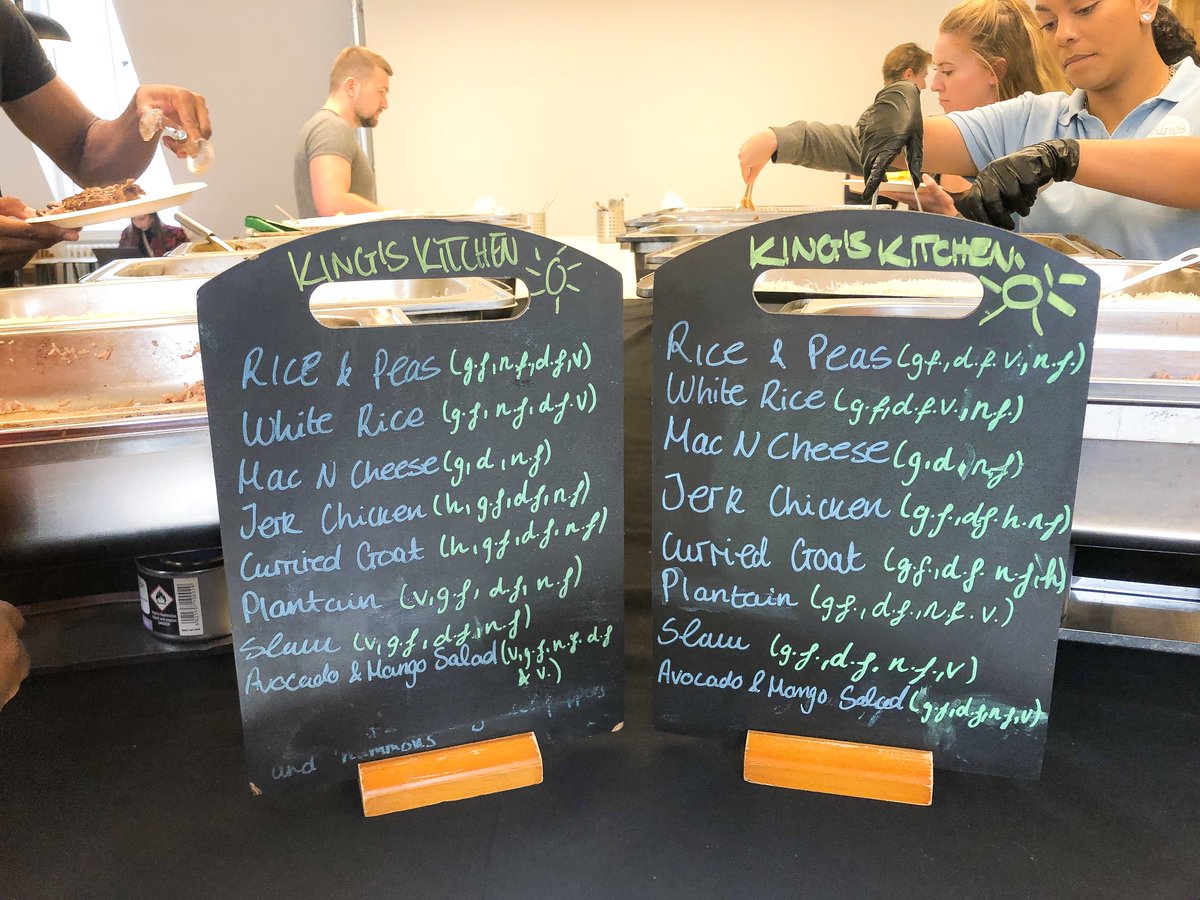 KING'S KITCHEN
RICE & PEAS (g.f, n.f, d.f, v)
White Rice (g.f, n.f, d.f. v)
Mac N Cheese (g, d, n.f)
Jerk Chicken (h, g.f, d.f, n.f)
Curried Goat (h, g.f, d.f, n.f)
Plantain (v, g.f, d.f, n.f)
Slaw (v, g.f, d.f, n.f)
Avocado & Mango Salad (v, g.f, n.f. d.f
& v.)
and hummous
KING'S KITCHEN.
Rice & Peas (g.f., d.f. v., n.f)
White Rice (g.f, d.f. v., n.f.)
Mac N Cheese (g, d, n.f)
Jerk Chicken (g.f., d.f. h. n.f)
Curried Goat (g.f., d.f. n.f, h)
Plantain (g.f., d.f., n.f. v.)
Slaw (g.f., d.f. n.f., v)
Avocado & Mango Salad (g.f, d.f, n.f, v)
Kings